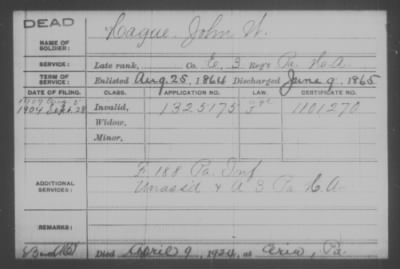 DEAD
NAME OF SOLDIER: Hague, John W.
SERVICE: Late rank, Co. E, 3 Reg't Pa. H.A.
TERM OF SERVICE: Enlisted Aug. 25, 1864 Discharged June 9, 1865
DATE OF FILING. CLASS. APPLICATION NO. LAW. CERTIFICATE NO.
1904 Sept. 28 Invalid, 1325175 1101270
Widow,
Minor,
ADDITIONAL SERVICES: F. 188 Pa. Inf.
Unassd & A 3 Pa. H.A.
REMARKS:
Died April 9, 1924, at Erie, Pa.